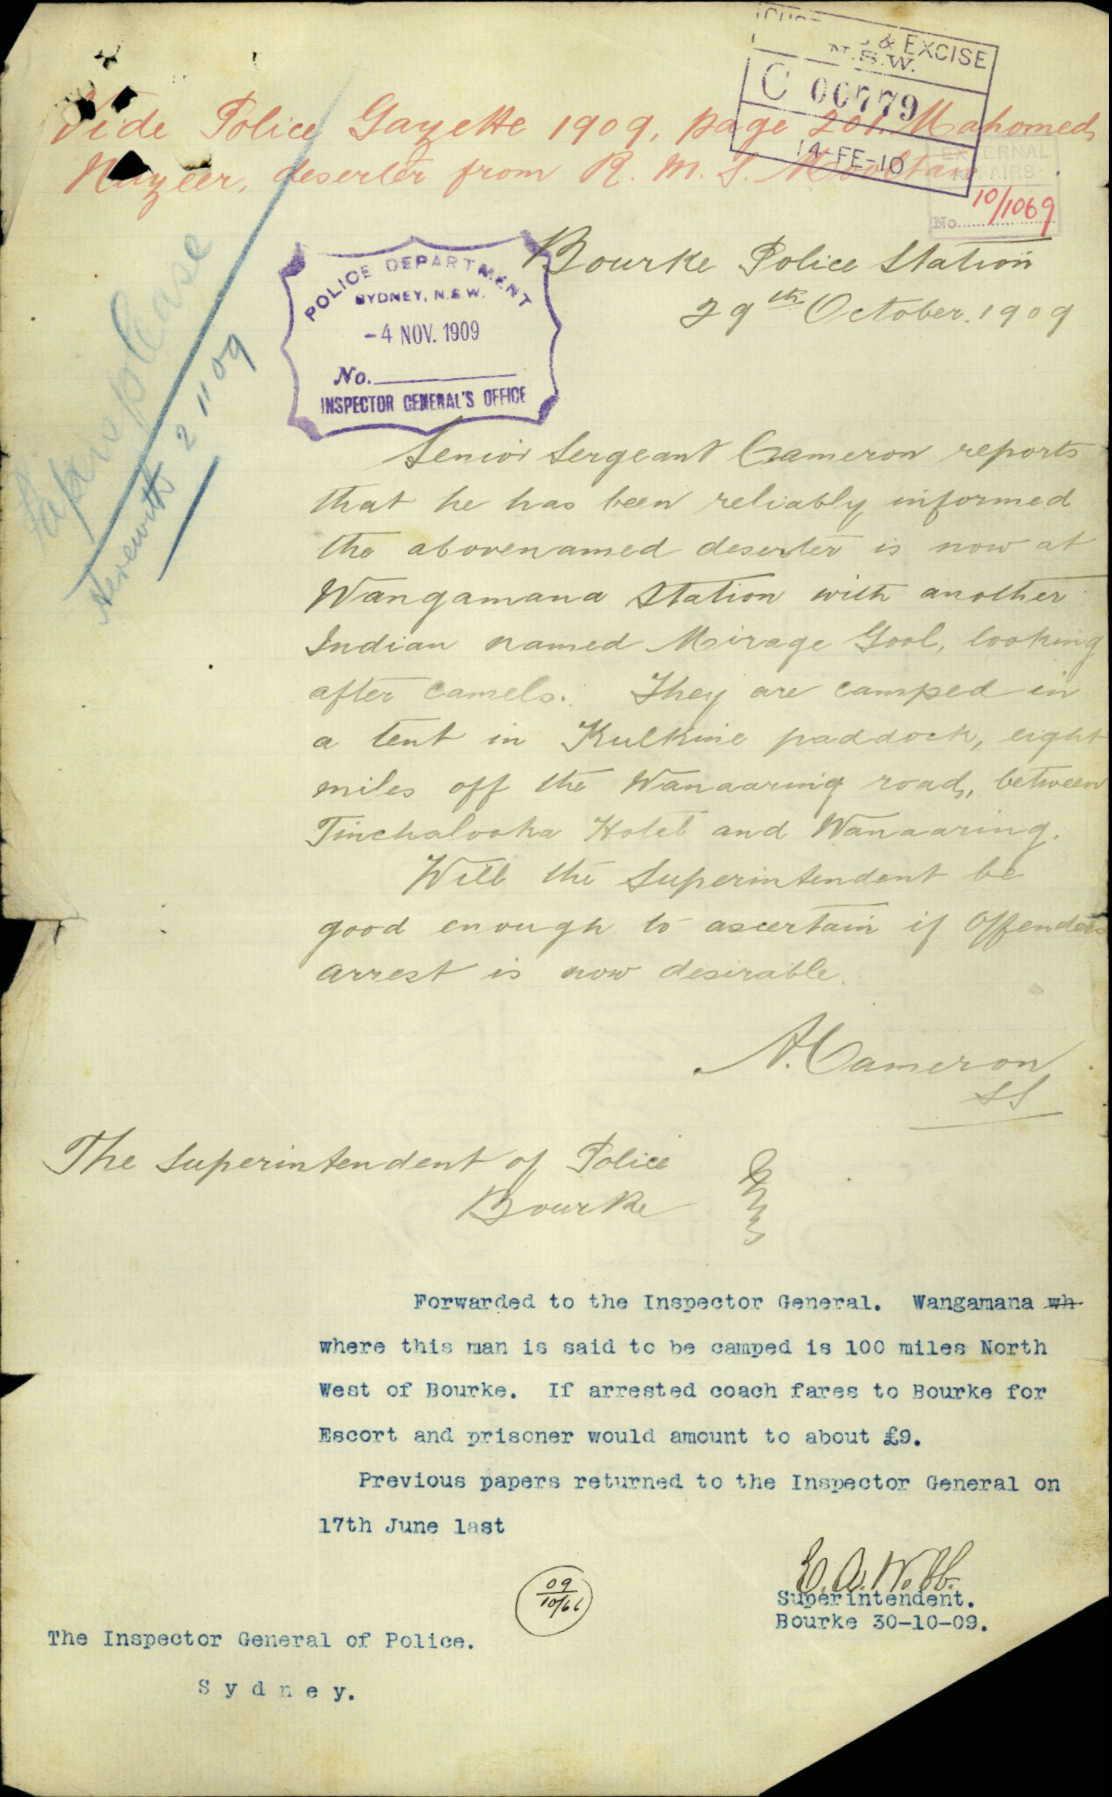 & EXCISE
N.S.W.
C 00779
14-FE-10
Vide Police Gazette 1909, page 201. Mahomed
Nuzeer, deserter from R. M. S. Mooltan
EXTERNAL
AFFAIRS
No. 10/1069
Bourke Police Station
29th October. 1909
POLICE DEPARTMENT
SYDNEY, N.S.W.
-4 NOV. 1909
No.
INSPECTOR GENERAL'S OFFICE
Papers please
Herewith 2 11 09
Senior Sergeant Cameron reports
that he has been reliably informed
the abovenamed deserter is now at
Wangamana Station with another
Indian named Mirage Gool, looking
after camels. They are camped in
a tent in Kulkine paddock, eight
miles off the Wanaaring road, between
Tinchalooka Hotel and Wanaaring.
Will the Superintendent be
good enough to ascertain if Offenders
arrest is now desirable.
A. Cameron
SS
The Superintendent of Police
Bourke
Forwarded to the Inspector General. Wangamana wh
where this man is said to be camped is 100 miles North
West of Bourke. If arrested coach fares to Bourke for
Escort and prisoner would amount to about £9.
Previous papers returned to the Inspector General on
17th June last
E. A. Webb.
Superintendent.
Bourke 30-10-09.
09
10/61
The Inspector General of Police.
Sydney.